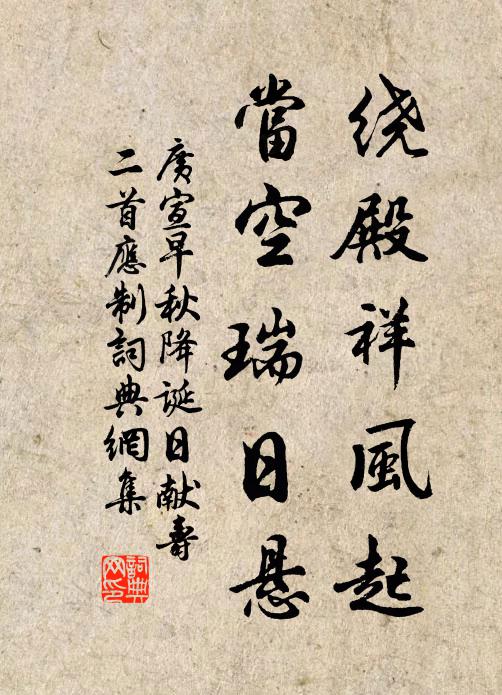 绕殿祥風起
當空瑞日悬
廣宣早秋降诞日献壽
二首應制詞典網集
詞典
网印